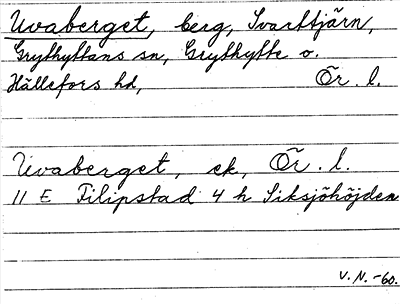 Uvaberget, berg, Svarttjärn,
Grythyttans sn, Grythytte o.
Hällefors hd, Ör. l.
Uvaberget, ek, Ör. l.
11 E Filipstad 4 h Siksjöhöjden
V. N. -60.